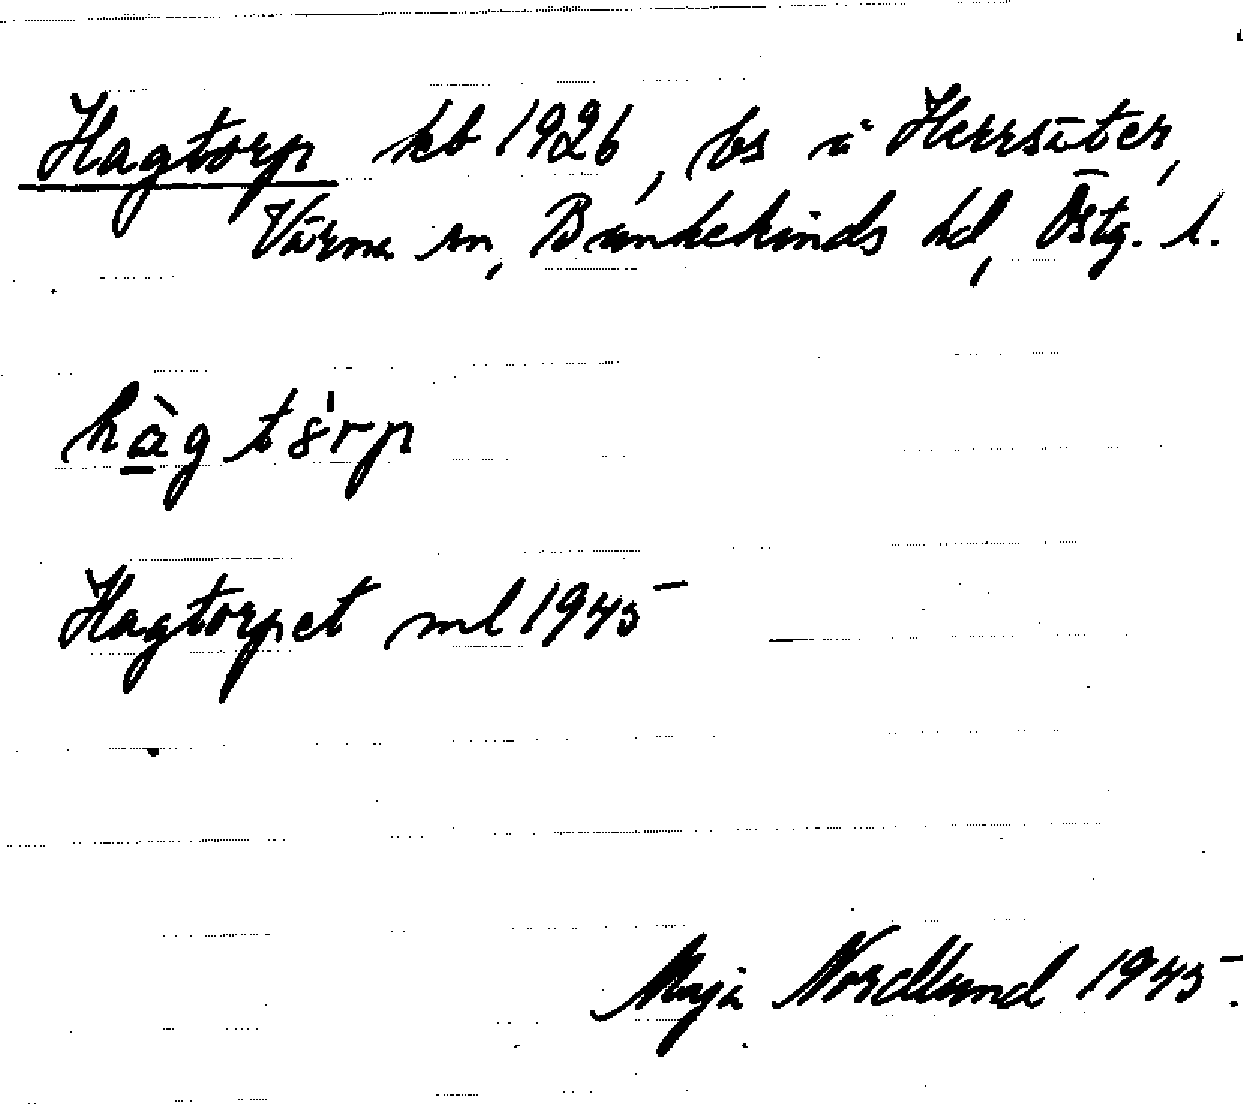 Hagtorp kb 1926, bs i Herrsäter,
Värna sn, Bankekinds hd, Östg. l.
hàgtörp
Hagtorpet ml 1945
Maja Nordlund 1945.